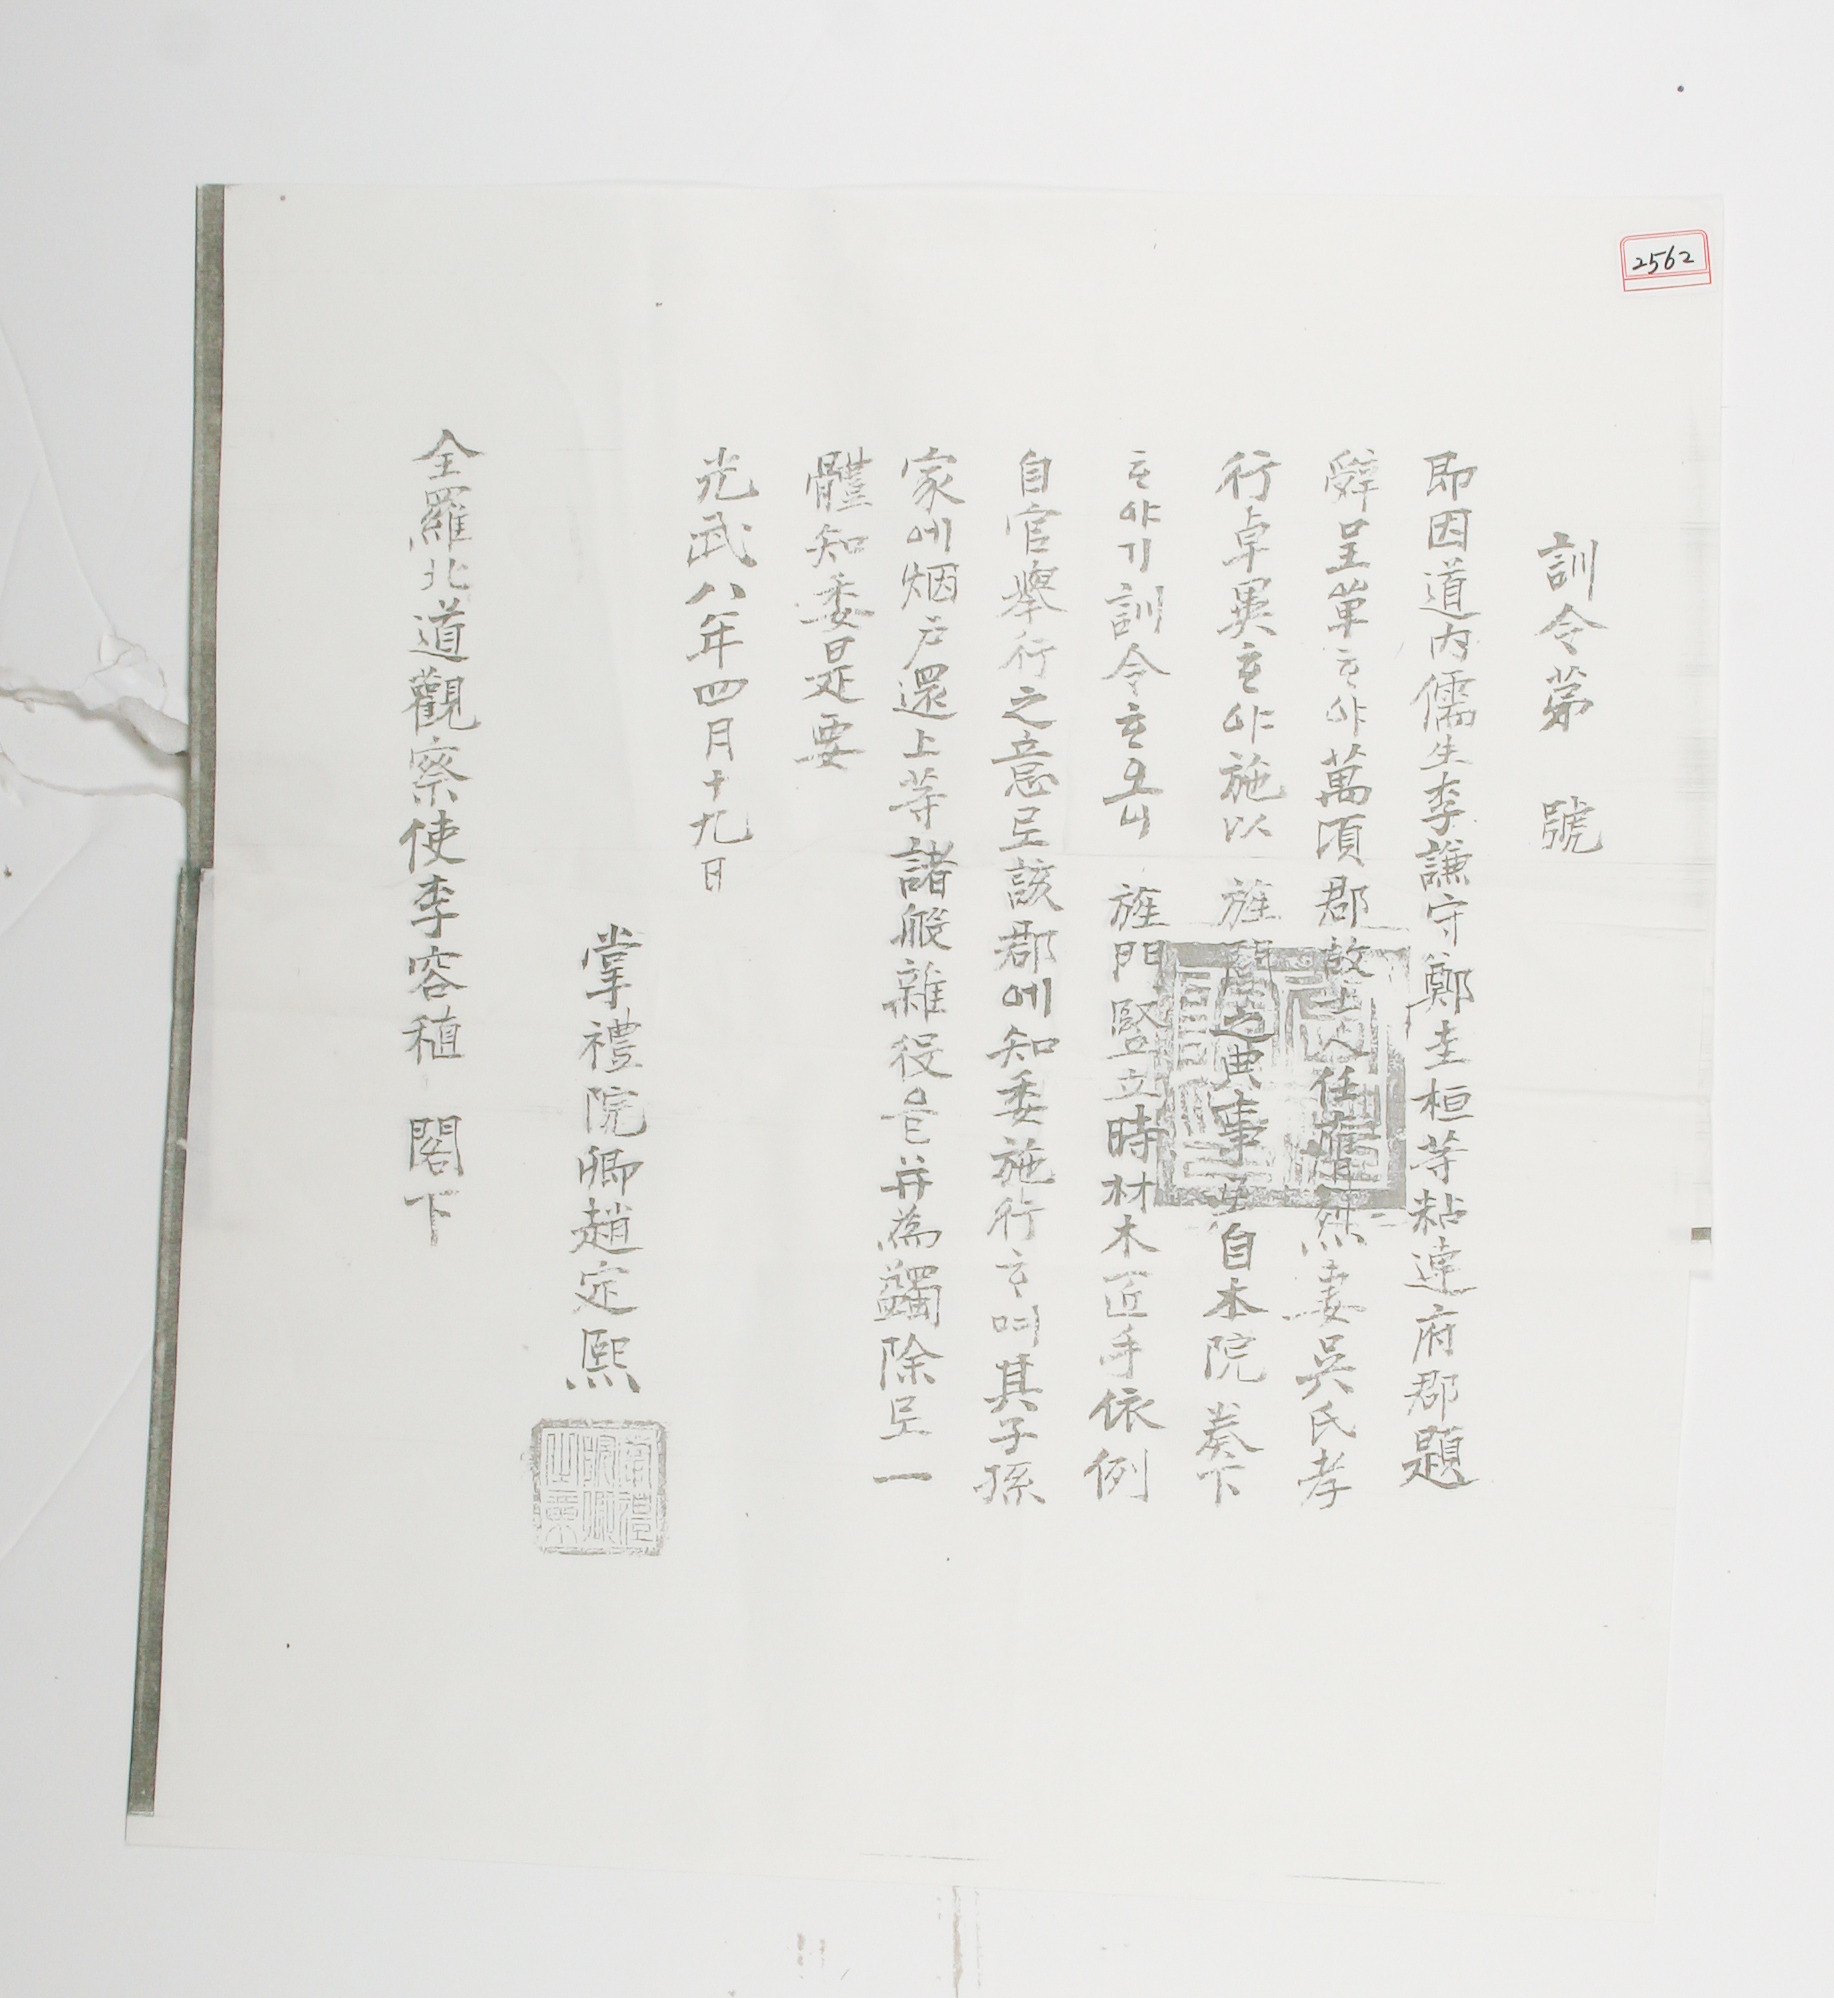 2562
訓令第 號
即因道內儒生李謙守鄭圭桓等粘連府郡題
辭呈單ᄒᆞ야萬頃郡故士人任 烈妻吳氏孝
行卓異ᄒᆞ야施以 旌門之典事 自本院 奏下
ᄒᆞ야기訓令ᄒᆞ오니 旌門竪立時材木匠手依例
自官擧行之意로該郡에知委施行ᄒᆞ며其子孫
家에烟戶還上等諸般雜役을幷爲蠲除로一
體知委是要
光武八年四月十九日
掌禮院卿趙定熙
全羅北道觀察使李容稙 閣下